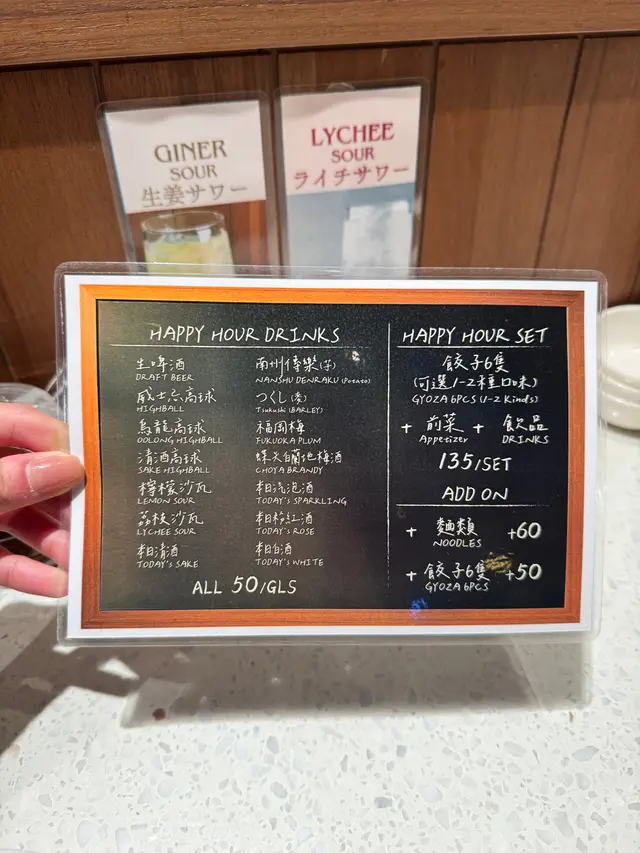 GINER
SOUR
生姜サワー
LYCHEE
SOUR
ライチサワー
HAPPY HOUR DRINKS
生啤酒
DRAFT BEER
威士忌高球
HIGHBALL
烏龍高球
OOLONG HIGHBALL
清酒高球
SAKE HIGHBALL
檸檬沙瓦
LEMON SOUR
荔枝沙瓦
LYCHEE SOUR
本日清酒
TODAY's SAKE
南州傳樂(芋)
NANSHU DENRAKU (Potato)
つくし(麦)
Tsukushi (BARLEY)
福岡梅
FUKUOKA PLUM
蝶矢白蘭地梅酒
CHOYA BRANDY
本日汽泡酒
TODAY's SPARKLING
本日粉紅酒
TODAY's ROSE
本日白酒
TODAY's WHITE
ALL 50/GLS
HAPPY HOUR SET
餃子6隻
(可選1-2種口味)
GYOZA 6PCS (1-2 Kinds)
+ 前菜 + 飲品
Appetizer DRINKS
135/SET
ADD ON
+ 麵類 +60
NOODLES
+ 餃子6隻 +50
GYOZA 6PCS